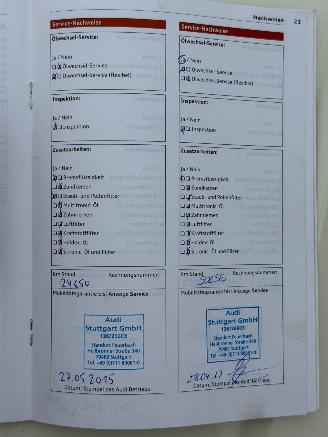 Nachweise 21
Service-Nachweise
Ölwechsel-Service:
Ja / Nein
Ölwechsel-Service
Ölwechsel-Service (flexibel)
Inspektion:
Ja / Nein
Inspektion
Zusatzarbeiten:
Ja / Nein
Bremsflüssigkeit
Zündkerzen
Staub- und Pollenfilter
Multitronic-Öl
Zahnriemen
Luftfilter
Kraftstofffilter
Haldex-Öl
S tronic Öl und Filter
Km Stand Rechnungsnummer:
24650
Mobilitätsgarantie bis: Anzeige Service
Audi
Stuttgart GmbH
136/26603
Standort Feuerbach
Heilbronner Straße 340
70469 Stuttgart
Tel. +49 (0)711 89081-0
27.05.2015
Datum, Stempel des Audi Betriebs
Service-Nachweise
Ölwechsel-Service:
Ja / Nein
Ölwechsel-Service
Ölwechsel-Service (flexibel)
Inspektion:
Ja / Nein
Inspektion
Zusatzarbeiten:
Ja / Nein
Bremsflüssigkeit
Zündkerzen
Staub- und Pollenfilter
Multitronic-Öl
Zahnriemen
Luftfilter
Kraftstofffilter
Haldex-Öl
S tronic Öl und Filter
Km Stand Rechnungsnummer:
Mobilitätsgarantie bis: Anzeige Service
Audi
Stuttgart GmbH
136/26603
Standort Feuerbach
Heilbronner Straße 340
70469 Stuttgart
Tel. +49 (0)711 89081-0
28.04.17
Datum, Stempel des Audi Betriebs